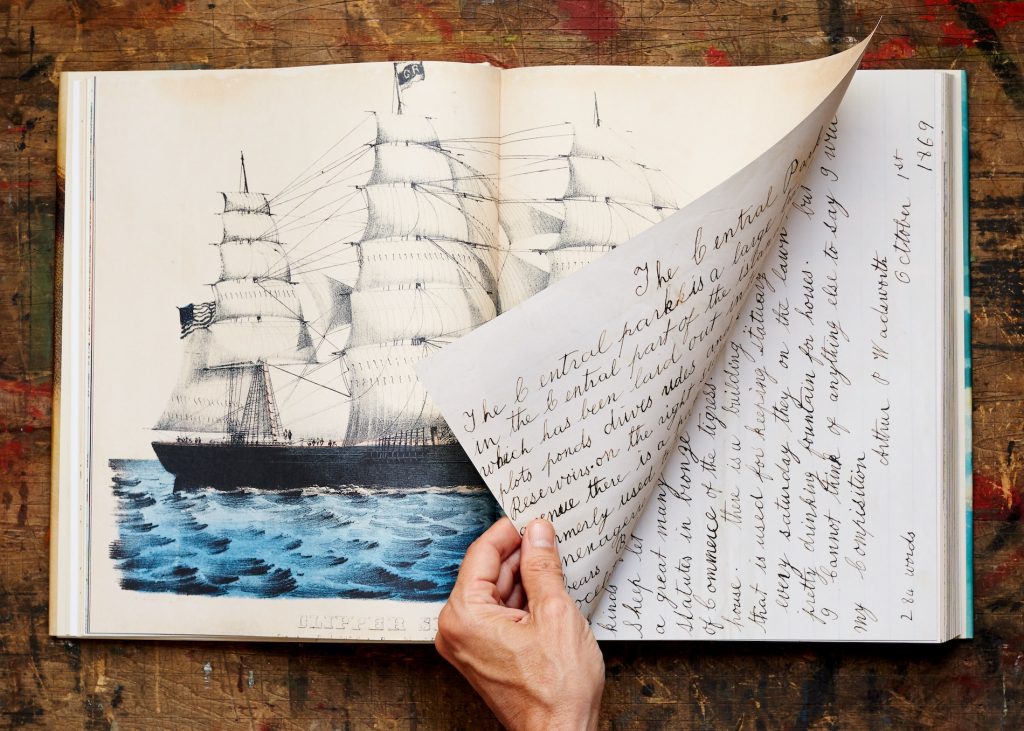 CLIPPER S
The Central Park
The Central park is a large
in the Central part of the Islan
which has been laid out in
plots ponds drives rides an
Reservoirs. on the aight
venue there is a
rmerly used a
menager
ears B
kinds
sheep let
a great many
statutes in bronz
of Commecce of the tigress
house. there is a building
that is used for keeping statuary
every saturday they on the lawn but
pretty drinking fountain for horses.
I cannot think of anything else to say I will
my Compisition
Arthur P Wadsworth
October 1st
1869
284 words